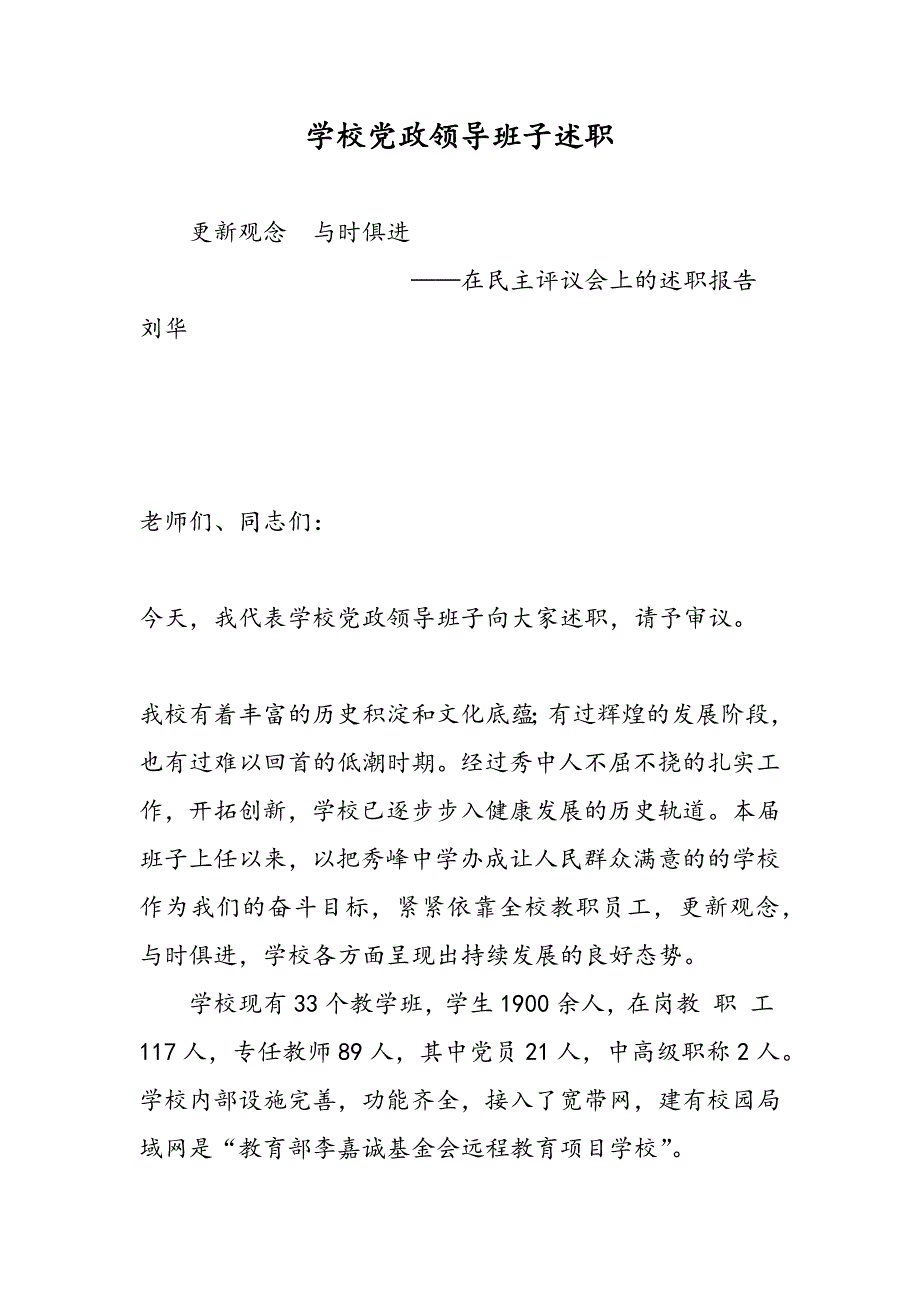 学校党政领导班子述职
更新观念　与时俱进
——在民主评议会上的述职报告
刘华
老师们、同志们：
今天，我代表学校党政领导班子向大家述职，请予审议。
我校有着丰富的历史积淀和文化底蕴；有过辉煌的发展阶段，
也有过难以回首的低潮时期。经过秀中人不屈不挠的扎实工
作，开拓创新，学校已逐步步入健康发展的历史轨道。本届
班子上任以来，以把秀峰中学办成让人民群众满意的的学校
作为我们的奋斗目标，紧紧依靠全校教职员工，更新观念，
与时俱进，学校各方面呈现出持续发展的良好态势。
学校现有 33 个教学班，学生 1900 余人，在岗教 职 工
117 人，专任教师 89 人，其中党员 21 人，中高级职称 2 人。
学校内部设施完善，功能齐全，接入了宽带网，建有校园局
域网是“教育部李嘉诚基金会远程教育项目学校”。